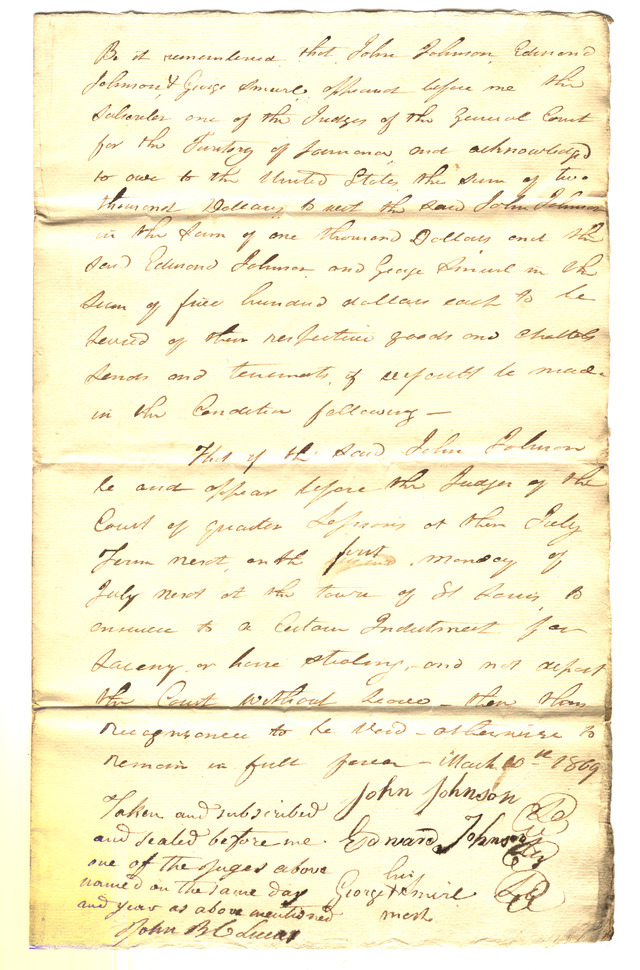 Be it remembered that John Johnson, Edmond
Johnson & George Smirl, appeared before me the
Subscriber one of the Judges of the General Court
for the Territory of Louisiana, and acknowledged
to owe to the United States, the sum of two
thousand Dollars, to wit the said John Johnson
in the sum of one thousand Dollars and the
said Edmond Johnson, and George Smirl in the
sum of five hundred dollars each to be
levied of their respective goods and chattels
Lands and tenements, if default be made
in the Condition following —
That if the said John Johnson
be and appear before the Judges of the
Court of quarter Sessions at their July
Term next, on the first monday of
July next at the town of St Louis, to
answer to a Certain Indictment for
Larceny or horse stealing, and not depart
the Court without leave — then this
recognizance to be Void — otherwise to
remain in full force — March 10th 1809
John Johnson
Taken and subscribed
and sealed before me Edward Johnson
one of the juges above
named on the same day his
George X Smirl
and year as above mentioned mark
John B C Lucas